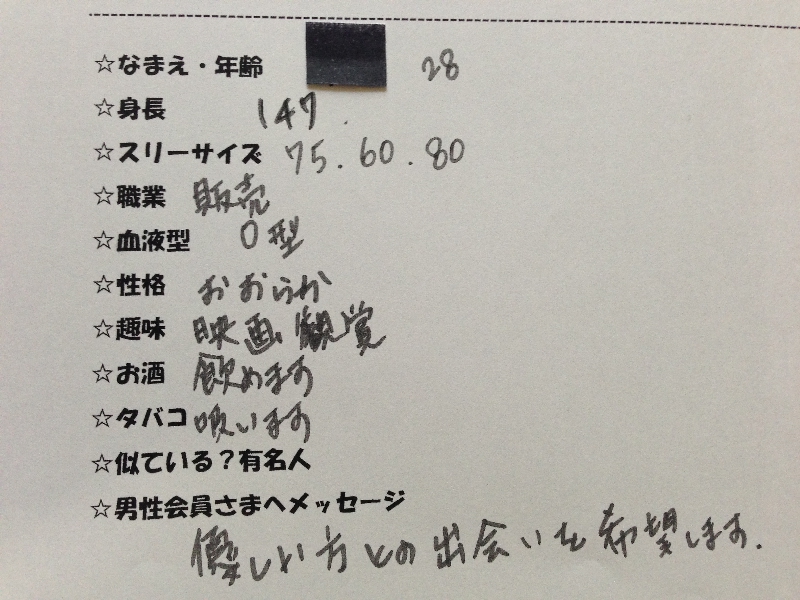 ☆なまえ・年齢 28
☆身長 147.
☆スリーサイズ 75.60.80
☆職業 販売
☆血液型 O型
☆性格 おおらか
☆趣味 映画観覚
☆お酒 飲めます
☆タバコ 吸います
☆似ている?有名人
☆男性会員さまへメッセージ
優しい方との出会いを希望します.